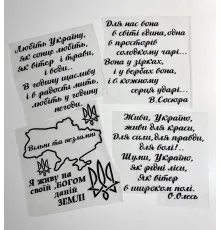 Любіть Україну,
як сонце любіть,
як вітер і трави,
і води...
В годину щасливу
і в радості мить,
любіть у годину
негоди.
Для нас вона
в світі єдина, одна
в просторів
солодкому чарі...
Вона у зірках,
і у вербах вона,
і в кожному
серця ударі...
В.Сосюра
Вільна та незламні
Я живу на
своїй БОГОМ
даній
ЗЕМЛІ
Живи, Україно,
живи для краси,
Для сили, для правди,
для волі!..
Шуми, Україно,
як рідні ліси,
Як вітер
в широкім полі.
О.Олесь